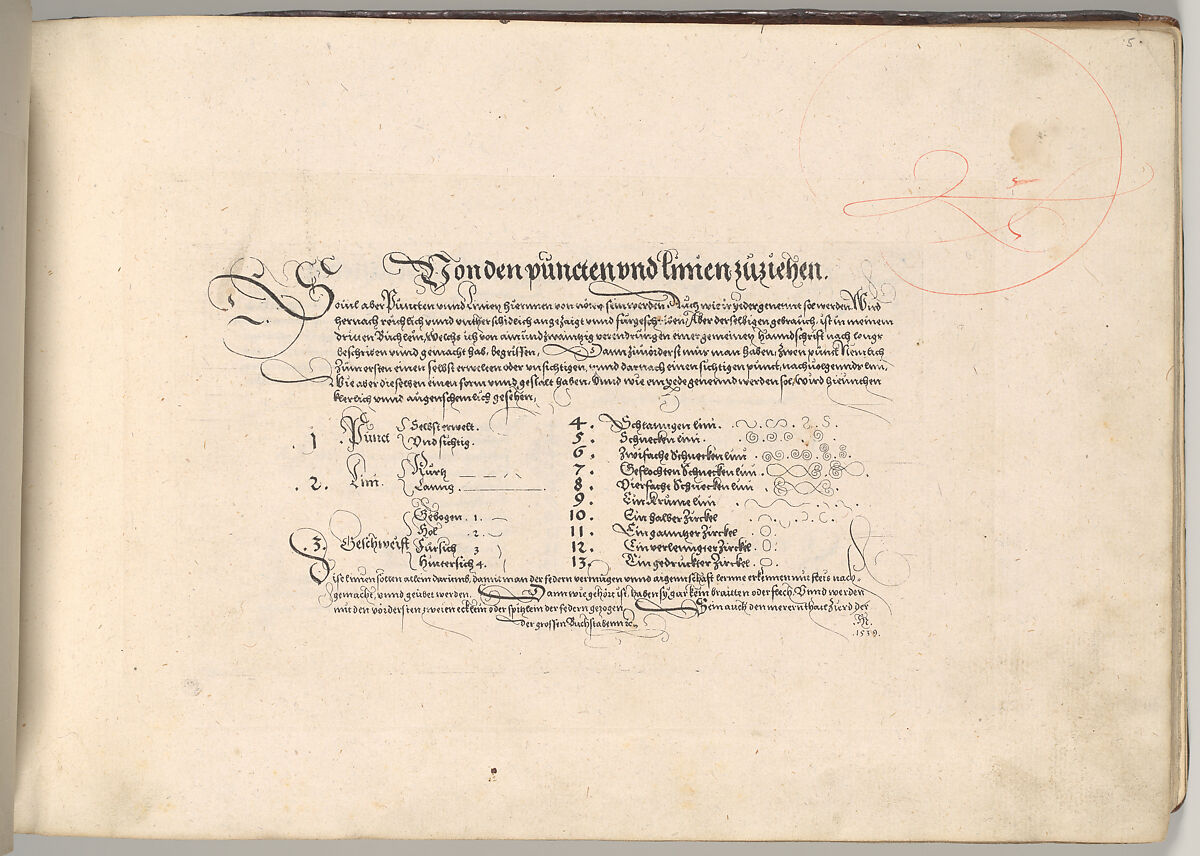 5.
Von den puncten vnd linien zuziehen.
So vil aber Puncten vnnd Linien hierinnen von nöten sein werden, Auch wie ir yeder genennt sol werden, Wird
hernach reichlich vnnd vntherschidlich angezaigt vnnd fürgeschriben, Aber derselbigen gebrauch, ist in meinem
dritten Büchlein, welchs ich von ainundzwantzig verendrungen einer gemeinen Hanndschrift nach lengs
beschriben vnnd gemacht hab, begriffen, Dann zuuörderst mus man haben, zwen punct Nemlich
Zum ersten einen selbst erwelten oder vnsichtigen, vnnd darnach einen sichtigen punct, nachuolgennd
Wie aber dieselben einen form vnnd gestalt haben, Vnnd wie ein yede genennd werden sol, Wird hieunthen
klerlich vnnd augenscheinlich gesehen,
1 Punct Selbst erwelt.
Vnd sichtig.
.2. Lini. Kurtz
Lanng.
.3. Geschweift Gebogen. 1.
Hol. 2.
Fürsich 3
Hintersich 4.
4. Schlanngen lini.
5. Schnecken lini.
6. Zwifache Schnecken lini
7. Geflochten Schnecken lini.
8. Vierfache Schnecken lini
9. Ein krume lini
10. Ein halber zirckel
11. Ein gantzer zirckel
12. Ein verlenngter zirckel.
13. Ein gedruckter zirckel.
Dise linien sollen allein darumb, damit man der federn vermügen vnnd aigennschaft lerrne erkennen mit fleis nach-
gemacht, vnnd geübet werden. Dann wie gehört ist, haben sy gar kein braitten oder flech, Vnnd werden
mit den vördersten zweien ecklein oder spitzlein der federn gezogen Sein auch den merernthail zierd der
der grossen Buchstaben etc.
.1539.